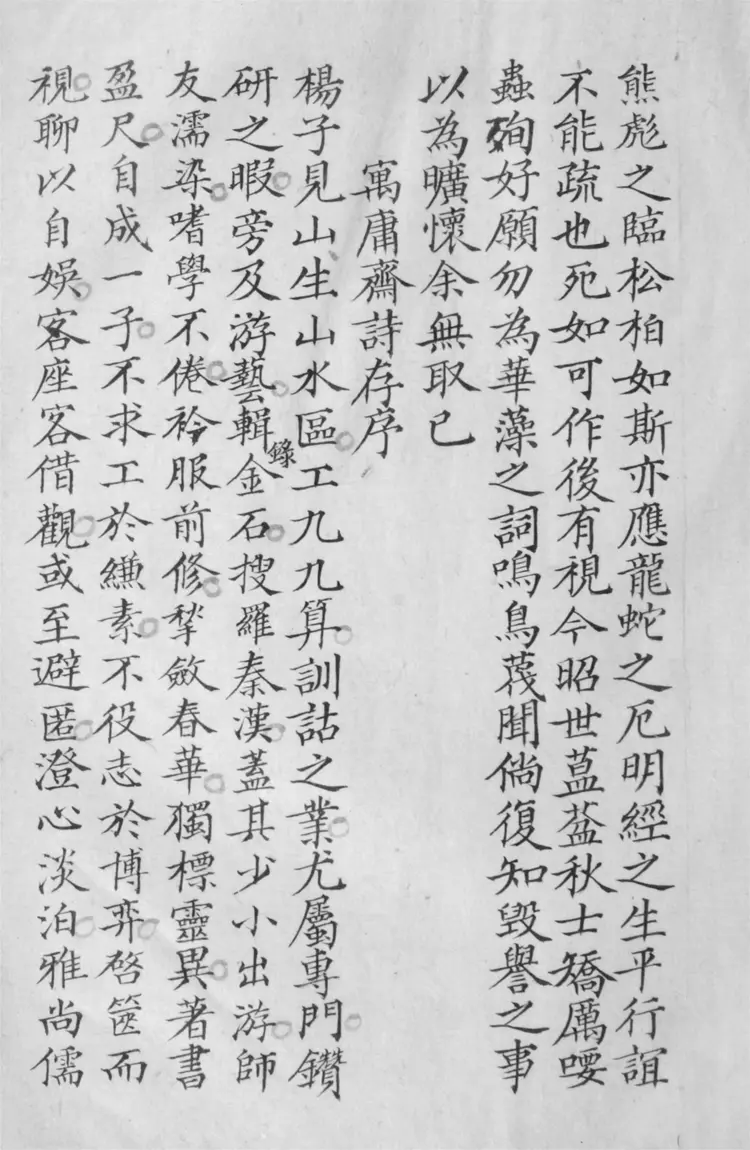 熊彪之臨松柏如斯亦應龍蛇之厄明經之生平行誼
不能疏也死如可作後有視今昭世蒀蒀秋士矯厲嘤
蟲殉好願勿為華藻之詞鳴鳥蔑聞倘復知毀譽之事
以為曠懷余無取已
寓庸齋詩存序
楊子見山生山水區工九九算訓詁之業尤屬專門鑽
研之暇旁及游藝輯錄金石搜羅秦漢蓋其少小出游師
友濡染嗜學不倦衿服前修揫斂春華獨標靈異著書
盈尺自成一子不求工於縑素不役志於博弈啓篋而
視聊以自娛客座客借觀或至避匿澄心淡泊雅尚儒